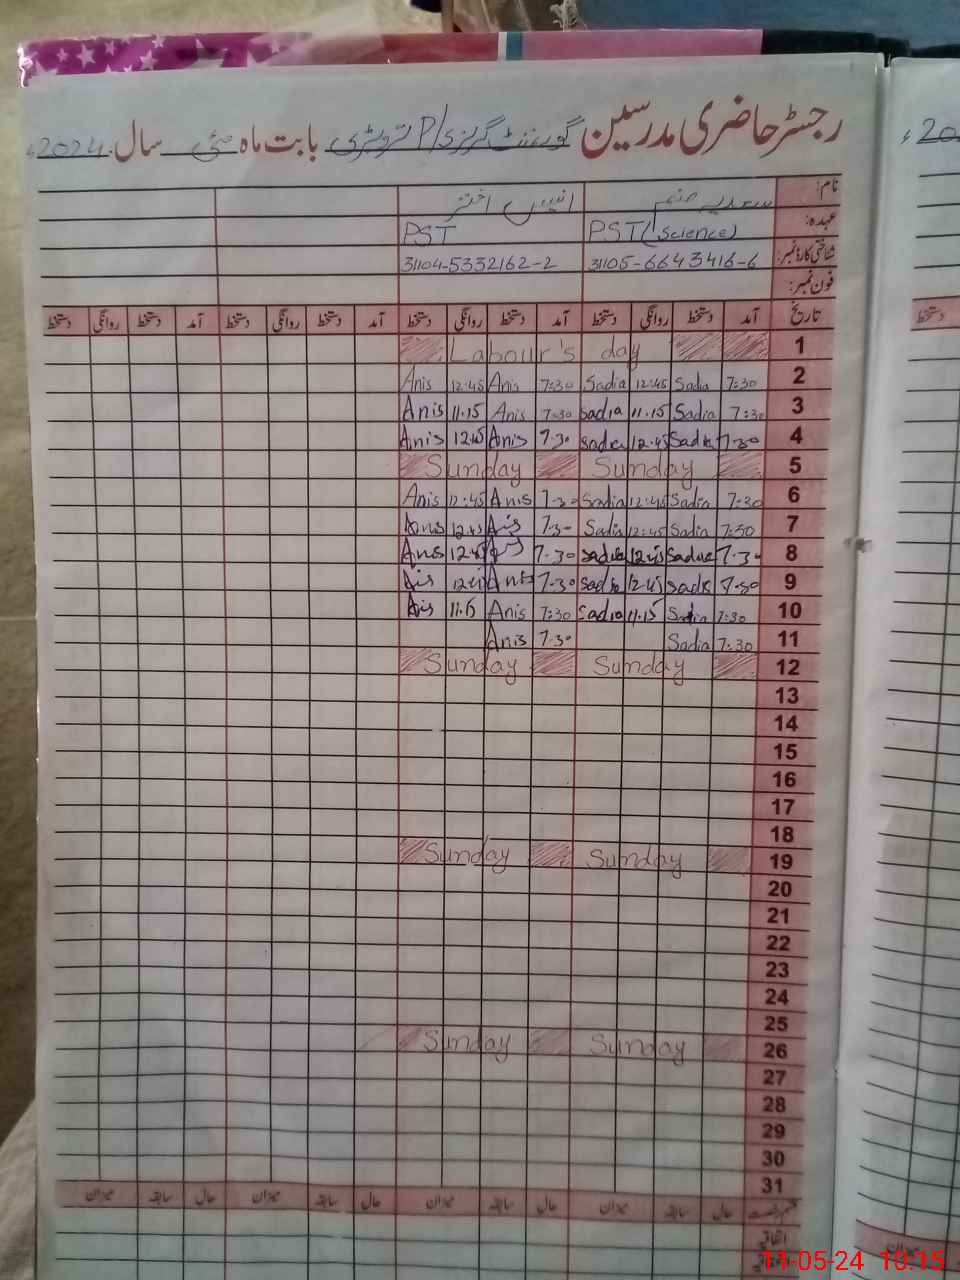 رجسٹر حاضری مدرسین گورنمنٹ گرلز P/ بابت ماہ مئی سال 2024ء
نام: سعدیہ صنم انیس اختر
عہدہ: PST (Science) PST
شناختی کارڈ نمبر: 31105-6643416-6 31104-5332162-2
فون نمبر:
تاریخ آمد دستخط روانگی دستخط آمد دستخط روانگی دستخط آمد دستخط روانگی دستخط آمد دستخط روانگی دستخط
Labour's day 1
Anis 12:45 Anis 7:30 Sadia 12:45 Sadia 7:30 2
Anis 11.15 Anis 7:30 Sadia 11.15 Sadia 7:30 3
Anis 12.45 Anis 7.30 Sadia 12.45 Sadia 7.30 4
Sunday Sunday 5
Anis 12:45 Anis 7.30 Sadia 12:45 Sadia 7:30 6
Anis 12.45 Anis 7.30 Sadia 12:45 Sadia 7:30 7
Anis 12.45 7.30 Sadia 12.45 Sadia 7.30 8
Anis 12.45 Anis 7.30 Sadia 12.45 Sadia 7.30 9
Anis 11.15 Anis 7:30 Sadia 11.15 Sadia 7:30 10
Anis 7.30 Sadia 7:30 11
Sunday Sunday 12
13
14
15
16
17
18
Sunday Sunday 19
20
21
22
23
24
25
Sunday Sunday 26
27
28
29
30
31
حال سابقہ میزان حال سابقہ میزان حال سابقہ میزان حال سابقہ میزان
اتفاقیہ
20
دستخط
میزان
11-05-24 10:15